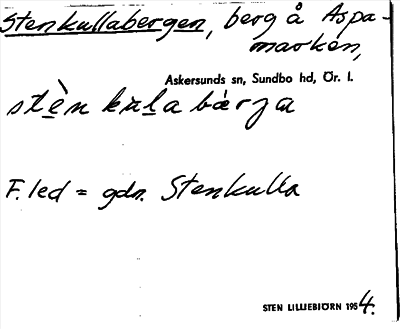 Stenkullabergen, berg å Aspa-
marken,
Askersunds sn, Sundbo hd, Ör. l.
stèn kula bærja
F. led = gdn. Stenkulla
STEN LILLIEBJÖRN 1954.